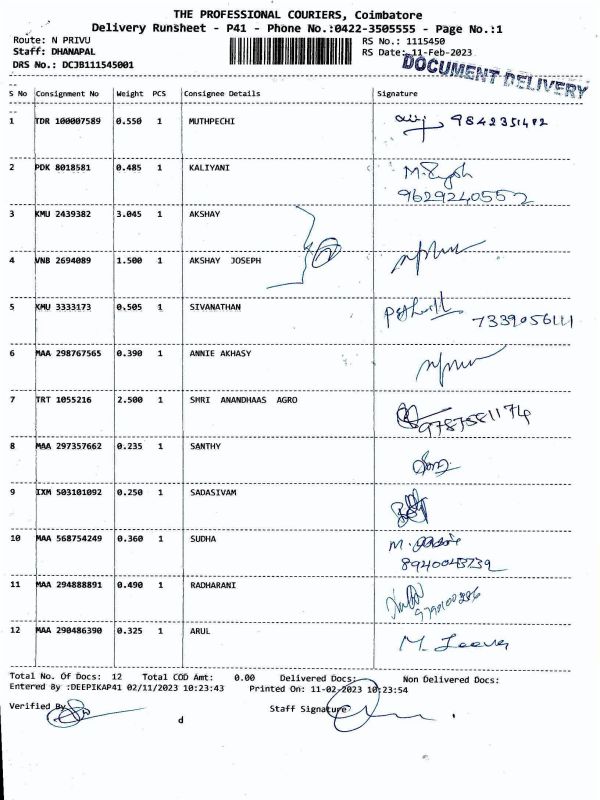 THE PROFESSIONAL COURIERS, Coimbatore
Delivery Runsheet - P41 - Phone No.:0422-3505555 - Page No.:1
Route: N PRIVU
RS No.: 1115450
Staff: DHANAPAL
RS Date: 11-Feb-2023
DRS No.: DCJB111545001
DOCUMENT DELIVERY
S No Consignment No Weight PCS Consignee Details Signature
1 TDR 100007589 0.550 1 MUTHPECHI 9842351482
2 PDK 8018581 0.485 1 KALIYANI
9629240552
3 KMU 2439382 3.045 1 AKSHAY
4 VNB 2694089 1.500 1 AKSHAY JOSEPH
5 KMU 3333173 0.505 1 SIVANATHAN
7339056111
6 MAA 298767565 0.390 1 ANNIE AKHASY
7 TRT 1055216 2.500 1 SHRI ANANDHAAS AGRO
9787581174
8 MAA 297357662 0.235 1 SANTHY
9 IXM 503101092 0.250 1 SADASIVAM
10 MAA 568754249 0.360 1 SUDHA
8940043739
11 MAA 294888891 0.490 1 RADHARANI
12 MAA 290486390 0.325 1 ARUL M.
Total No. Of Docs: 12 Total COD Amt: 0.00 Delivered Docs: Non Delivered Docs:
Entered By :DEEPIKAP41 02/11/2023 10:23:43 Printed On: 11-02-2023 10:23:54
Verified By
Staff Signature
d